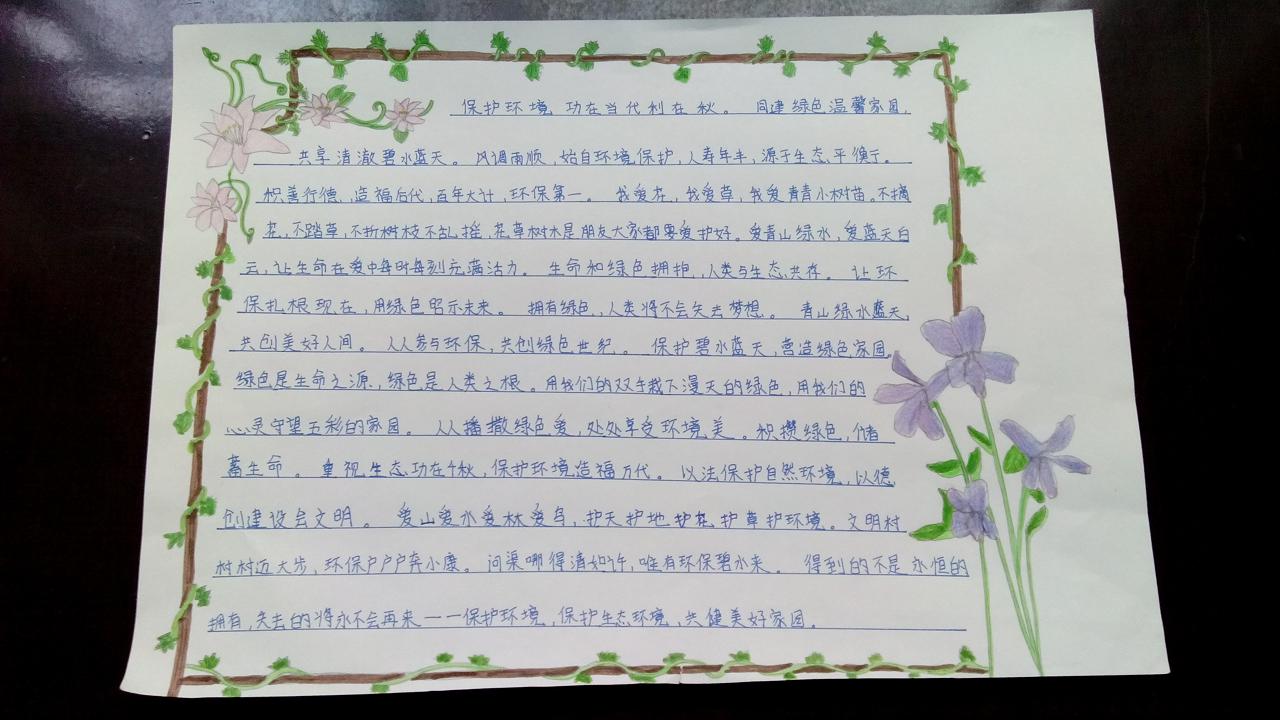 保护环境 功在当代利在秋。 同建绿色温馨家园,
共享清澈碧水蓝天。 风调雨顺,始自环境保护,人寿年丰,源于生态平衡于。
积善行德、造福后代,百年大计,环保第一。 我爱花,我爱草,我爱青青小树苗。不摘
花,不踏草,不折树枝不乱摇,花草树木是朋友大家都要爱护好。爱青山绿水,爱蓝天白
云,让生命在爱中每时每刻充满活力。 生命和绿色拥抱,人类与生态共存。 让环
保扎根现在,用绿色昭示未来。 拥有绿色,人类将不会失去梦想。 青山绿水蓝天,
共创美好人间。 人人参与环保,共创绿色世纪。 保护碧水蓝天,营造绿色家园。
绿色是生命之源,绿色是人类之根。用我们的双手栽下漫天的绿色,用我们的
心灵守望五彩的家园。 人人播撒绿色爱,处处享受环境美。积攒绿色,储
蓄生命。 重视生态功在千秋,保护环境造福万代。 以法保护自然环境,以德
创建设会文明。 爱山爱水爱林爱鸟,护天护地护花护草护环境。文明村
村村迈大步,环保户户户奔小康。 问渠哪得清如许,唯有环保碧水来。 得到的不是永恒的
拥有,失去的将永不会再来——保护环境,保护生态环境,共健美好家园。